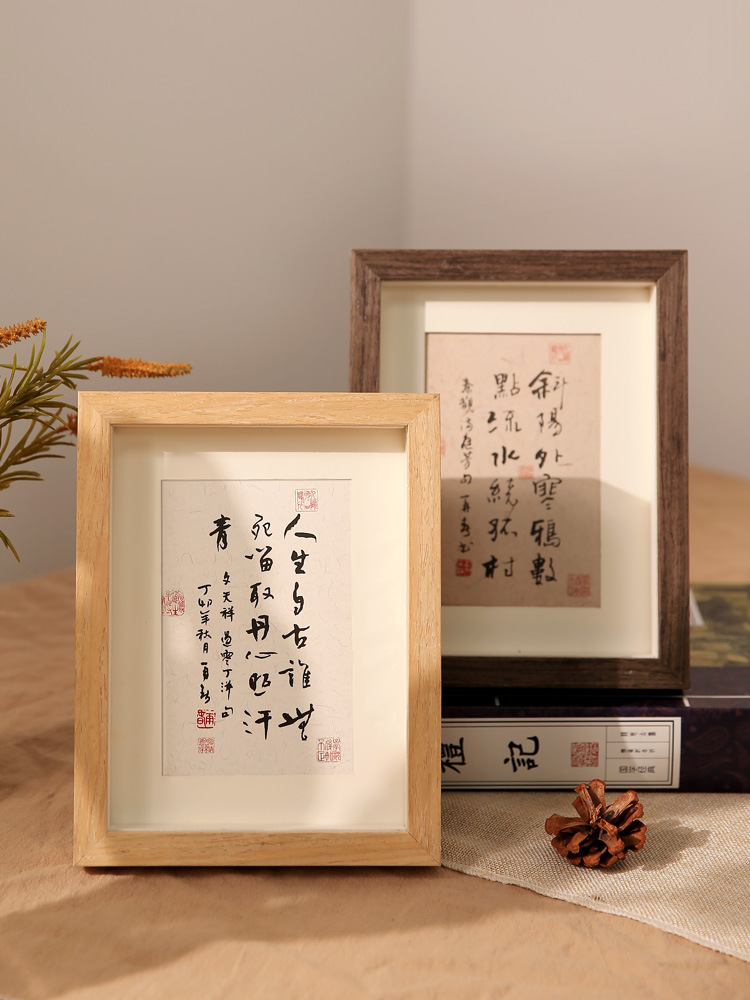 斜陽外寒鴉數
點流水繞孤村
秦觀滿庭芳句
人生自古誰無
死留取丹心照汗
青
文天祥 過零丁洋句
丁卯年秋月
禮記
国学经典